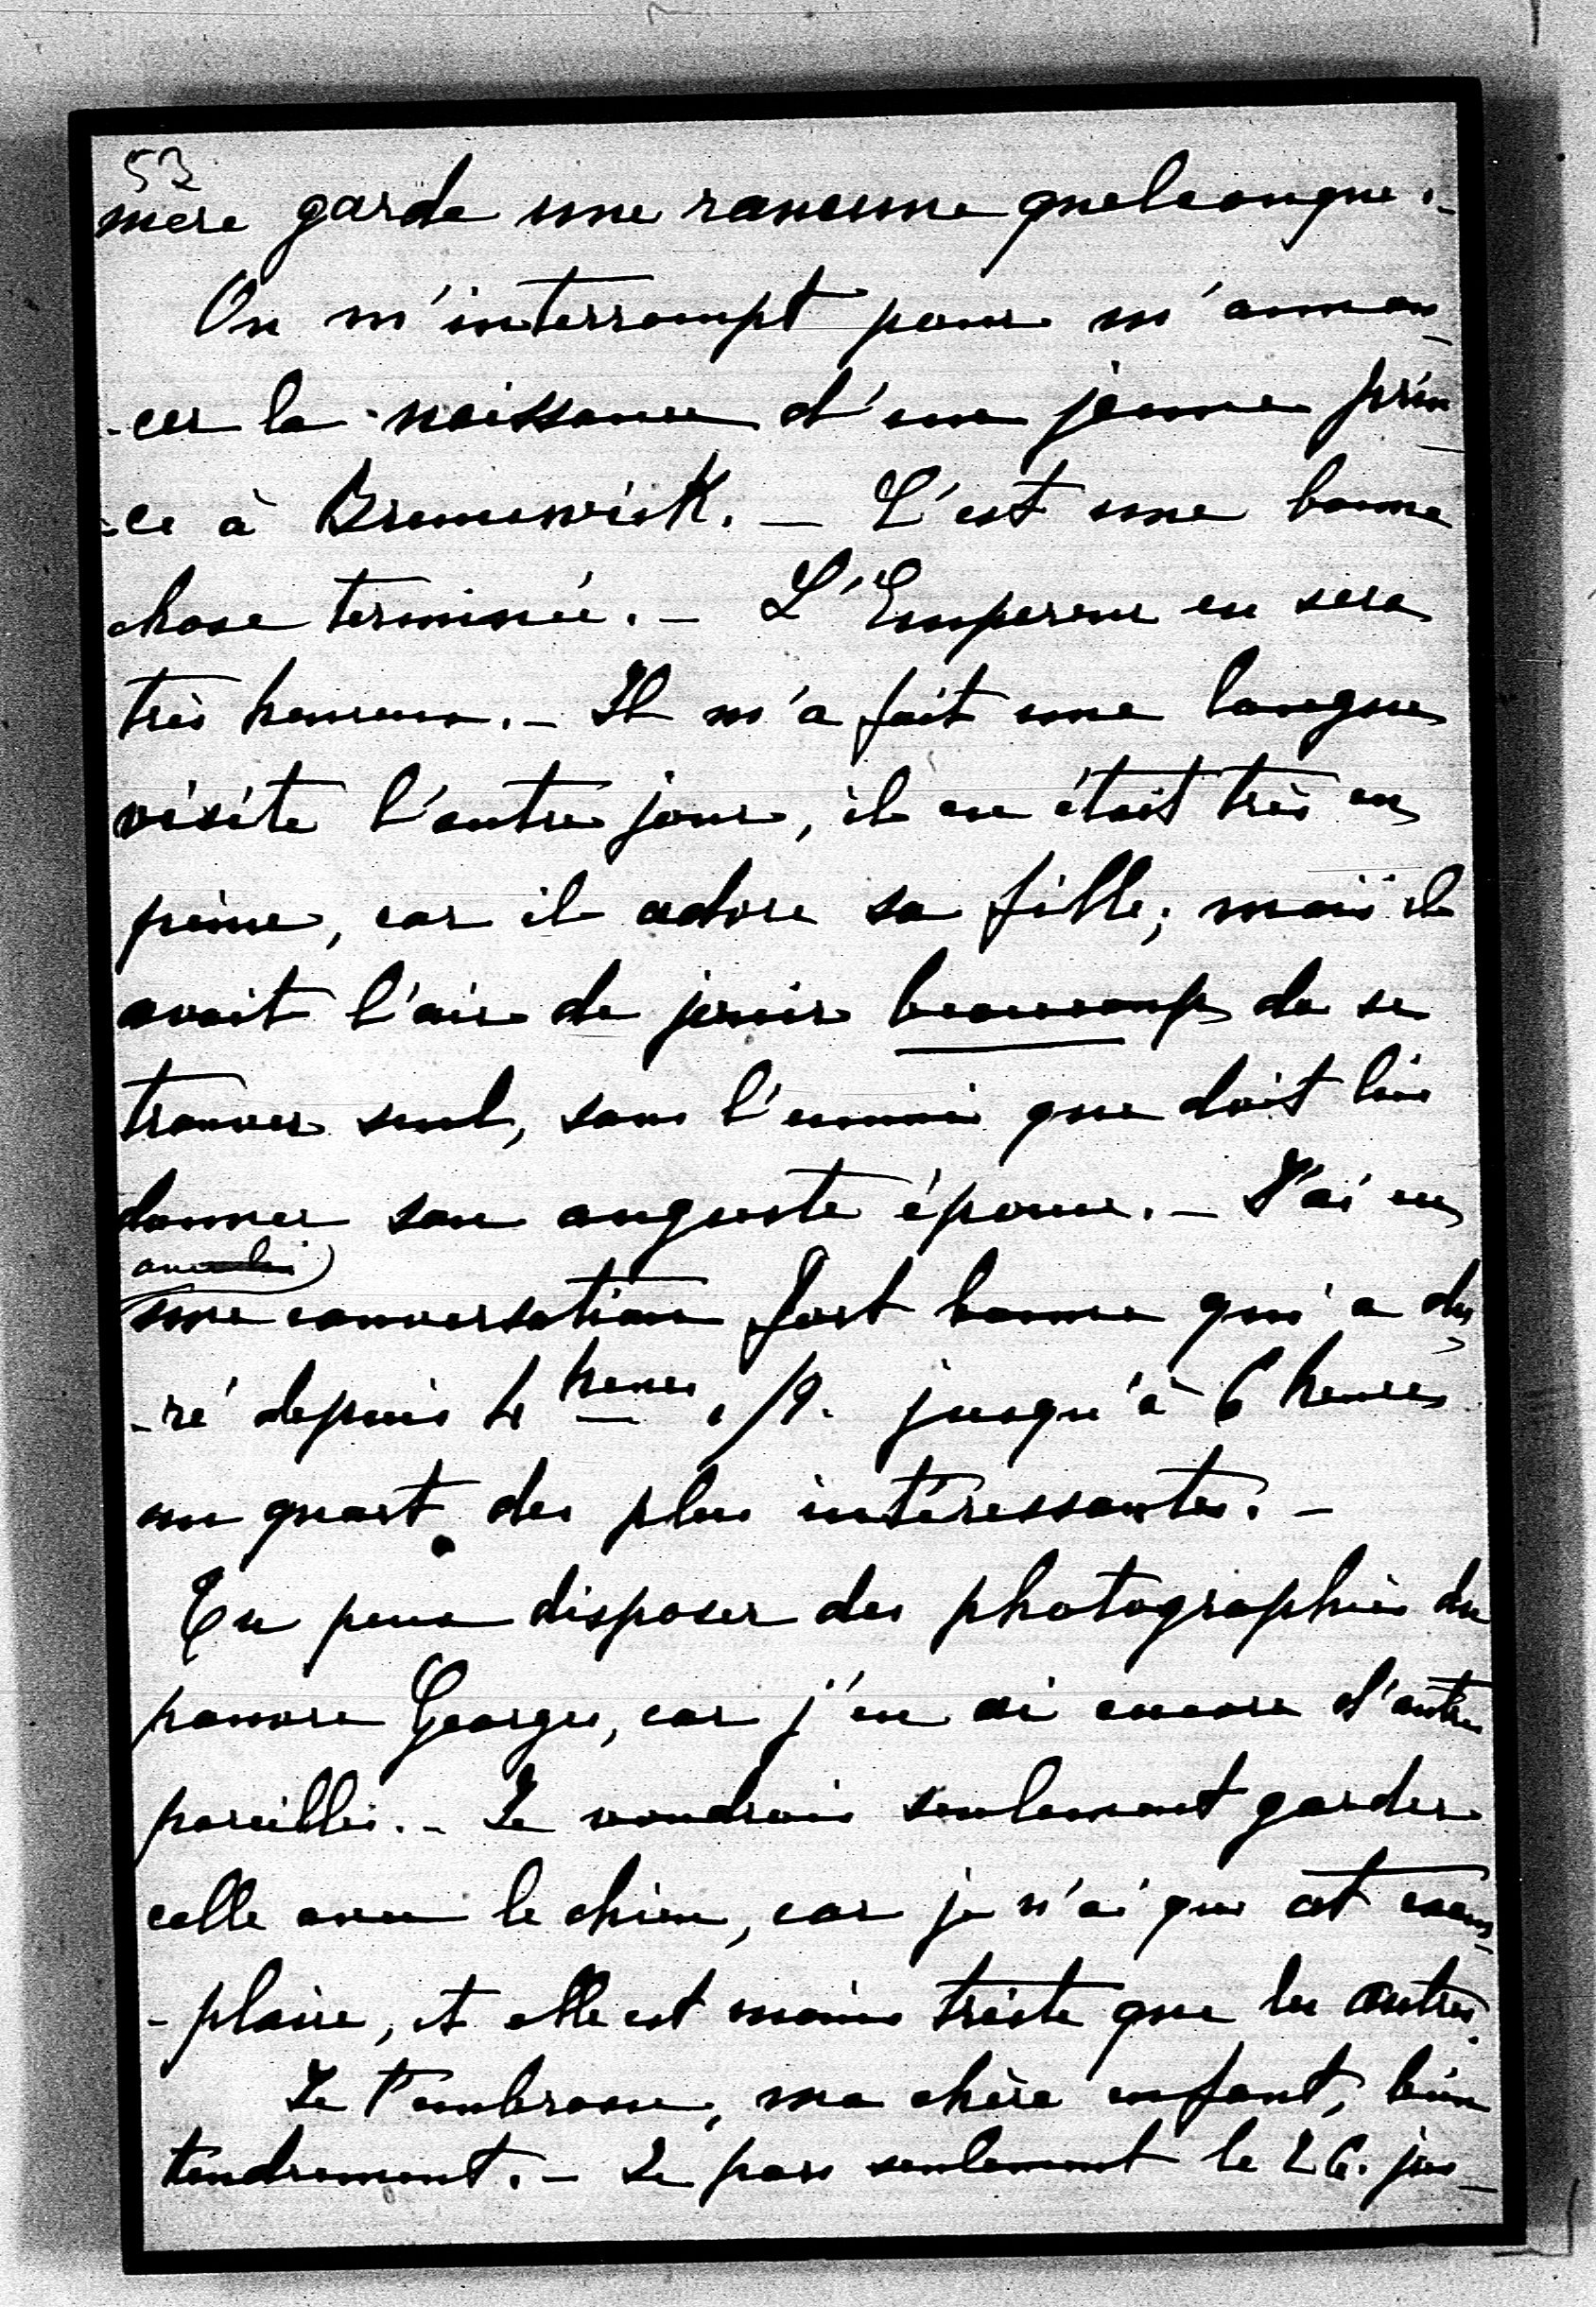 53
mère garde une rancune quelconque.-
On m'interrompt pour m'annon-
-cer la naissance d'un jeune prin-
-ce à Brunswick. - C'est une bonne
chose terminée. - L'Empereur en sera
très heureux. - Il m'a fait une longue
visite l'autre jour, il en était très en
peine, car il adore sa fille; mais il
avait l'air de jouir beaucoup de se
trouver seul, sans l'ennui que doit lui
donner son auguste épouse. - J'ai eu
avec lui
une conversation fort bonne qui a du-
-ré depuis 4 heures 1/2. jusqu'à 6 heures
un quart des plus intéressantes. -
Tu peux disposer des photographies du
pauvre Georges, car j'en ai encore d'autres
pareilles. - Je voudrais seulement garder
celle avec le chien, car je n'ai que cet exem-
-plaire, et elle est moins triste que les autres.
Je t'embrasse, ma chère enfant, bien
tendrement. - Je pars seulement le 26. jus-